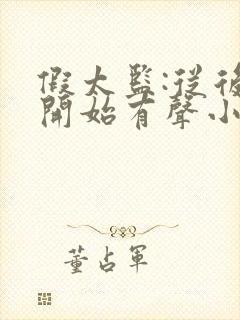 假太監:從後
開始有聲小
董占軍